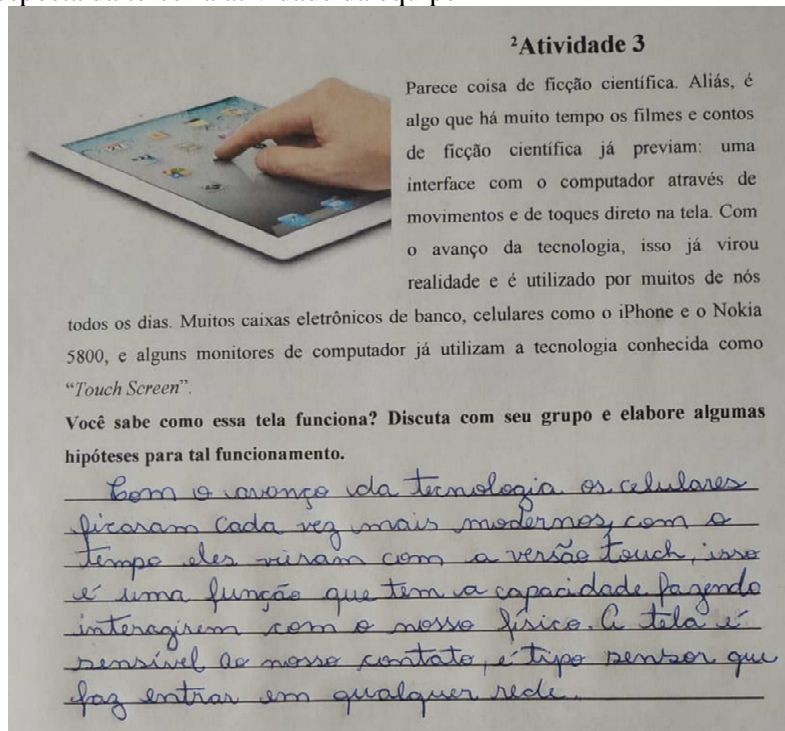 ²Atividade 3
Parece coisa de ficção científica. Aliás, é
algo que há muito tempo os filmes e contos
de ficção científica já previam: uma
interface com o computador através de
movimentos e de toques direto na tela. Com
o avanço da tecnologia, isso já virou
realidade e é utilizado por muitos de nós
todos os dias. Muitos caixas eletrônicos de banco, celulares como o iPhone e o Nokia
5800, e alguns monitores de computador já utilizam a tecnologia conhecida como
“Touch Screen”.
Você sabe como essa tela funciona? Discuta com seu grupo e elabore algumas
hipóteses para tal funcionamento.
Com o avanço da tecnologia os celulares
ficaram cada vez mais modernos, com o
tempo eles viiram com a versão touch, isso
é uma função que tem a capacidade fazendo
interagirem com o nosso físico. A tela é
sensível ao nosso contato, é tipo sensor que
faz entrar em qualquer rede.